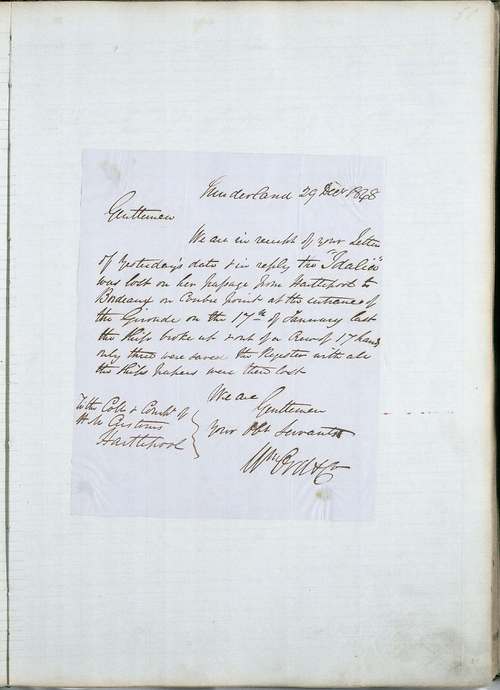 Sunderland 29 Decr 1868
Gentlemen
We are in receipt of your Letter
of yesterday's date & in reply the "Idalia"
was lost on her passage from Hartlepool to
Bordeaux on Coubre Point at the entrance of
the Gironde on the 17th of January last
the Ship broke up & out of a Crew of 17 hands
only three were saved the Register with all
the Ships papers were then lost
We are
Gentlemen
your Obt Servants
Wm Ord & Co
To the Collr & Comptr of
H.M Customs
Hartlepool